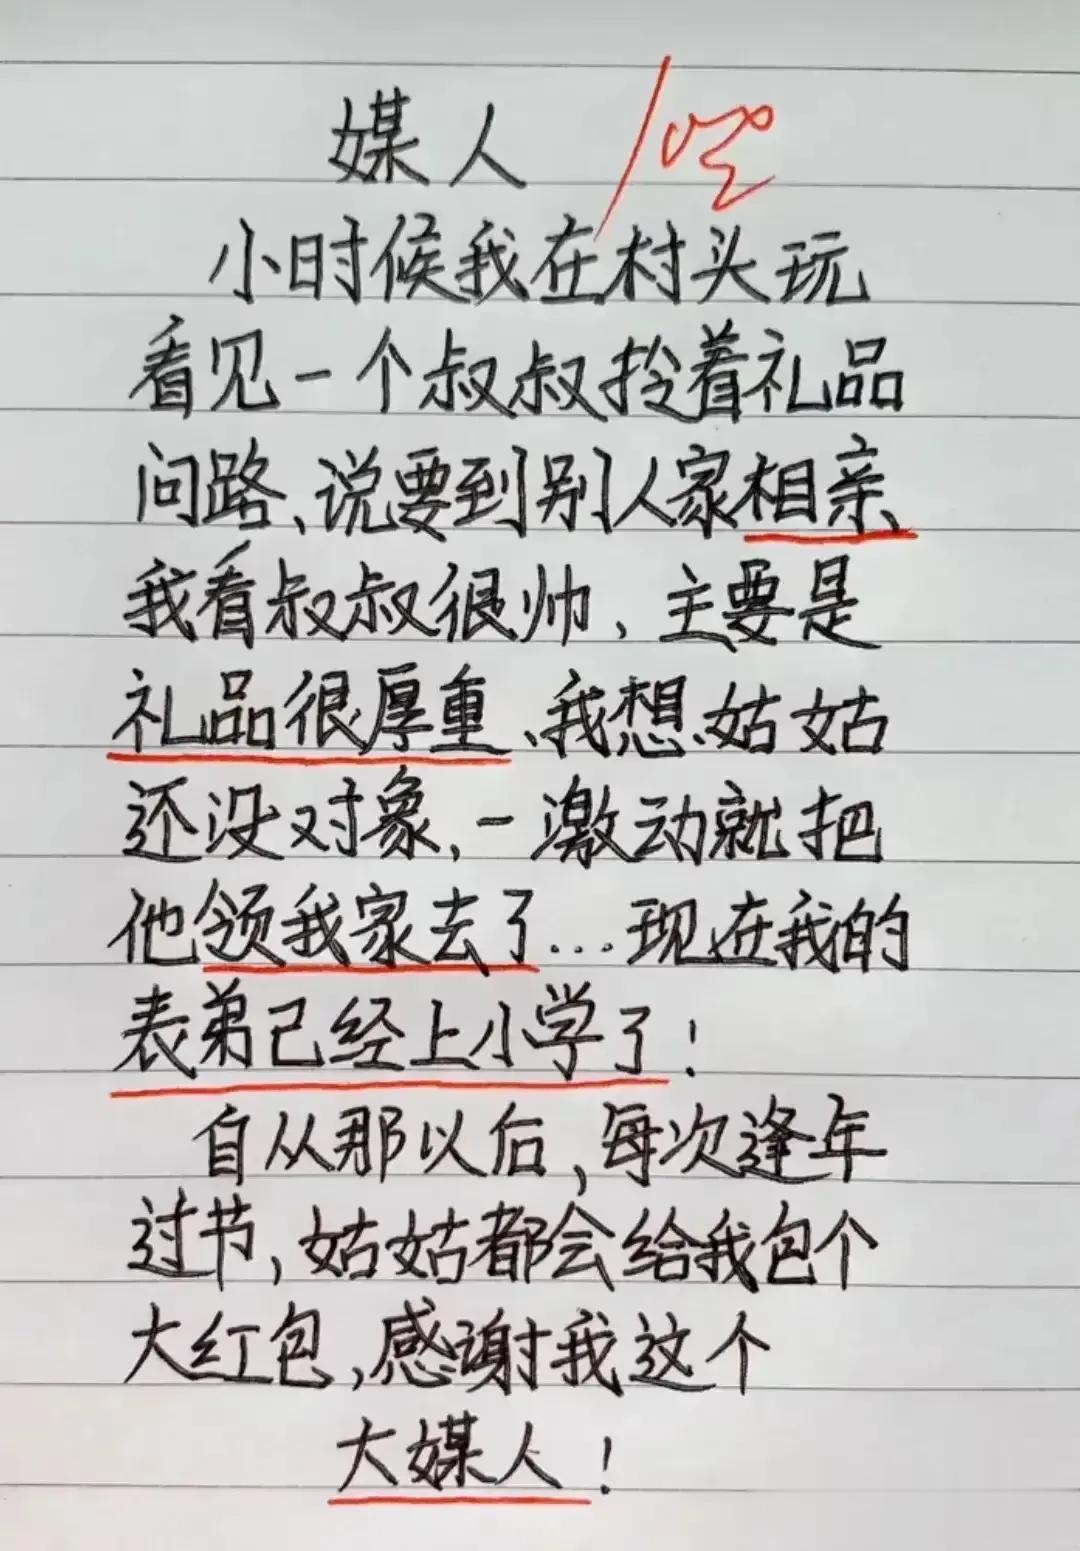 媒人
100
小时候我在村头玩
看见一个叔叔拎着礼品
问路、说要到别人家相亲、
我看叔叔很帅、主要是
礼品很厚重、我想姑姑
还没对象，一激动就把
他领我家去了…现在我的
表弟已经上小学了！
自从那以后，每次逢年
过节，姑姑都会给我包个
大红包，感谢我这个
大媒人！